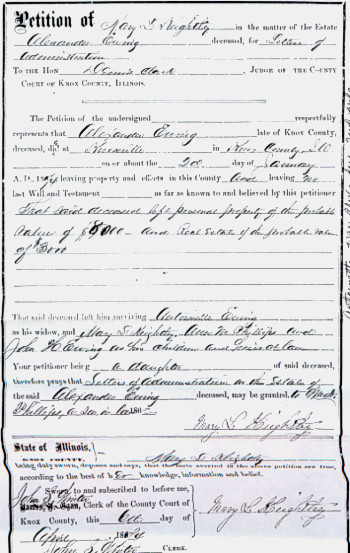 Petition of Mary L Keightley in the matter of the Estate
Alexander Ewing deceased, for Letters of
Administration
To the Hon Dennis Clark Judge of the County
Court of Knox County, Illinois.
The Petition of the undersigned respectfully
represents that Alexander Ewing late of Knox County,
deceased, died at Knoxville in Knox County, Ill
on or about the day of January
A. D. leaving property and effects in this County and leaving no
last Will and Testament as far as known to and believed by this petitioner
That said deceased left personal property of the probable
value of $8,000 — and Real Estate of the probable value
of $3000
That said deceased left him surviving Ewing
as his widow, and Mary L Keightley, Ann M Phillips and
John H Ewing as his children and heirs at law
Your petitioner being a daughter of said deceased,
therefore prays that Letters of Administration on the Estate of
the said Alexander Ewing deceased, may be granted, to
Phillips, a son in law 186
Mary L Keightley
State of Illinois,
Knox County,
Mary L Keightley
being duly sworn, deposes and says, that the facts averred in the above petition are true,
according to the best of her knowledge, information and belief.
Sworn to and subscribed to before me,
Clerk of the County Court of
Knox County, this day of
April
Mary L Keightley
Clerk.